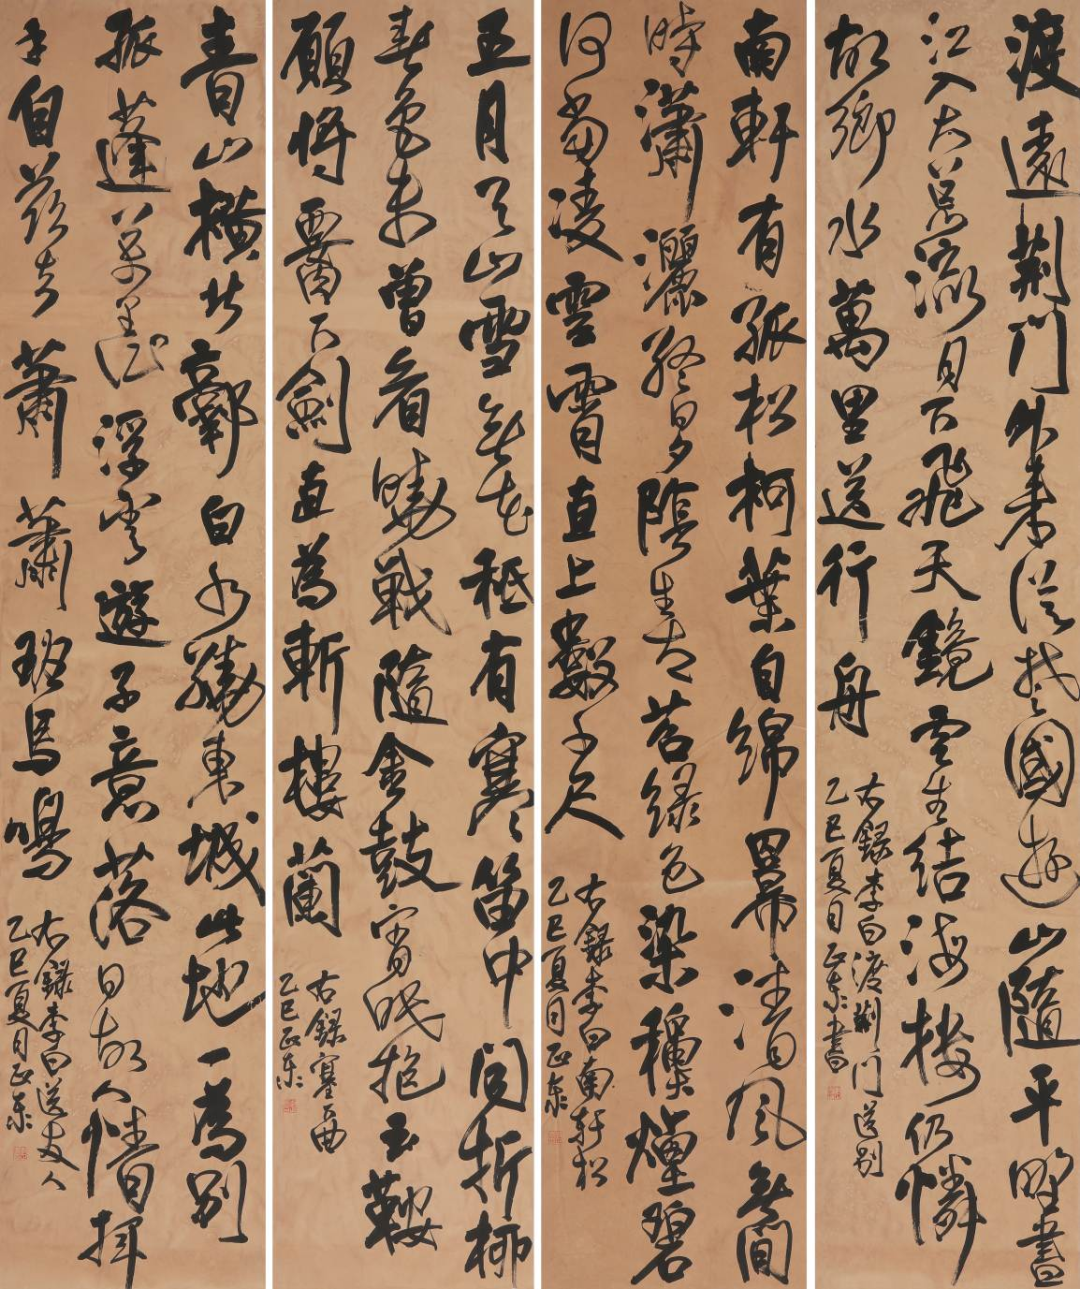 渡遠荆門外来從楚國遊山隨平野盡
江入大荒流月下飛天鏡雲生結海樓仍憐
故鄉水萬里送行舟
右録李白渡荆門送别
乙巳夏月正東書
南軒有孤松柯葉自綿冪清風無閒
時瀟灑終日夕陰生古苔緑色染穐煙碧
何當凌雲霄直上數千尺
右録李白南軒松
乙巳夏月正東
五月天山雪無花秖有寒笛中聞折柳
春色未曾看曉戰隨金鼓宵眠抱玉鞍
願將腰下劍直為斬樓蘭
右録塞下曲
乙巳正東
青山横北郭白水繞東城此地一為别
孤蓬萬里征浮雲遊子意落日故人情揮
手自兹去蕭蕭班馬鳴
右録李白送友人
乙巳夏月正東